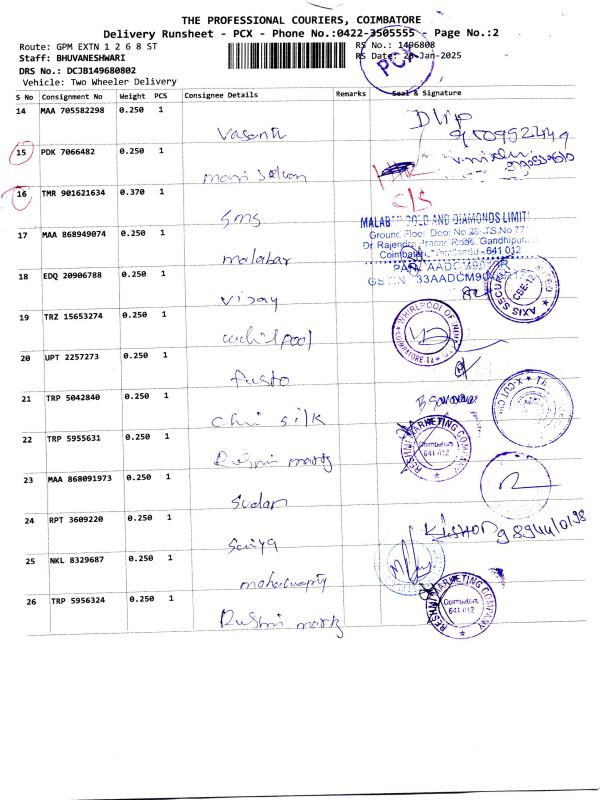 THE PROFESSIONAL COURIERS, COIMBATORE
Delivery Runsheet - PCX - Phone No.:0422-3505555 - Page No.:2
Route: GPM EXTN 1 2 6 8 ST
RS No.: 1496808
Staff: BHUVANESHWARI
RS Date: -Jan-2025
PCX
DRS No.: DCJB149680802
Vehicle: Two Wheeler Delivery
S No Consignment No Weight PCS Consignee Details Remarks Seal & Signature
14 MAA 705582298 0.250 1 Vasanth Dlip
15 PDK 7066482 0.250 1 mani Selvan
16 TMR 901621634 0.370 1 SMS C/S
MALABAR GOLD AND DIAMONDS LIMIT
Ground Floor Door No TS.No 77
Dr. Rajendra Prasad Road, Gandhipura
Coimbatore, Tamilnadu - 641 012
17 MAA 868949074 0.250 1 malabar
18 EDQ 20906788 0.250 1 Vijay
AXIS SECUR
CBE-12
19 TRZ 15653274 0.250 1 whilpool
WHIRLPOOL OF INDIA
COIMBATORE-12
20 UPT 2257273 0.250 1 fusto
21 TRP 5042840 0.250 1 Chui silk
X-CUT
22 TRP 5955631 0.250 1 Rushmi mark
RESHMI MARKETING COMPANY
Coimbatore
641 012
23 MAA 868091973 0.250 1 Sudan
24 RPT 3609220 0.250 1 Saiya Kishor
25 NKL 8329687 0.250 1
26 TRP 5956324 0.250 1 Rushmi mark
RESHMI MARKETING COMPANY
Coimbatore
641 012